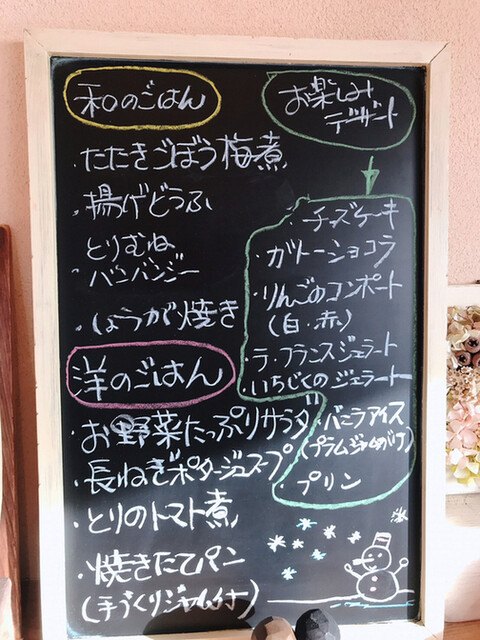 和のごはん
・たたきごぼう梅煮
・揚げどうふ
・とりむね
バンバンジー
・しょうが焼き
洋のごはん
・お野菜たっぷりサラダ
・長ねぎポタージュスープ
・とりのトマト煮
・焼きたてパン
(手づくりジャム付)
お楽しみ
デザート
・チーズケーキ
・ガトーショコラ
・りんごのコンポート
(白・赤)
・ラ・フランスジェラート
・いちじくのジェラート
・バニラアイス
(プラムジャムがけ)
・プリン